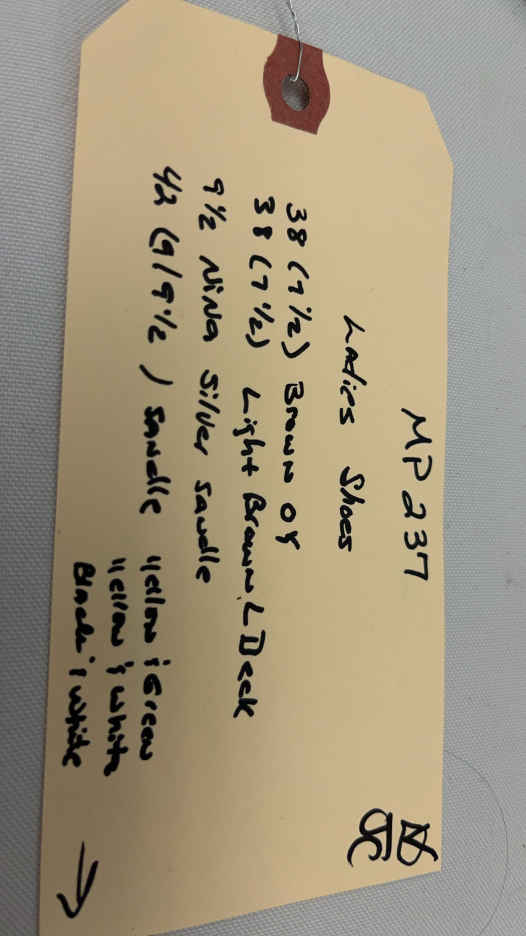 MP 237
Ladies Shoes
38 (7 1/2) Brown OY
38 (7 1/2) Light Brown L Deck
9 1/2 NiNa Silver Sandle
42 (9/9 1/2) Sandle Yellow & Green
Yellow & White
Black & White
JC